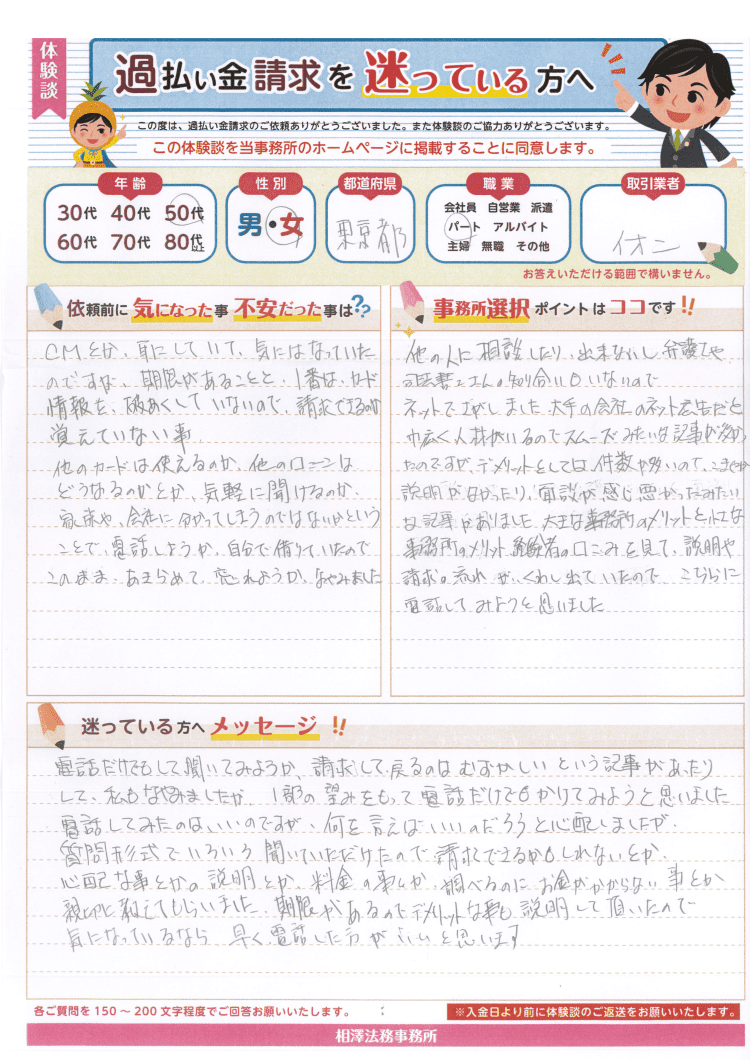 体験談
過払い金請求を迷っている方へ
この度は、過払い金請求のご依頼ありがとうございました。また体験談のご協力ありがとうございます。
この体験談を当事務所のホームページに掲載することに同意します。
年齢
30代 40代 50代
60代 70代 80代以上
性別
男・女
都道府県
東京都
職業
会社員 自営業 派遣
パート アルバイト
主婦 無職 その他
取引業者
イオン
お答えいただける範囲で構いません。
依頼前に気になった事 不安だった事は??
CMとか、耳にしていて、気にはなっていた
のですが、期限があることと、1番は、カード
情報を、破棄していないので、請求できるのか
覚えていない事
他のカードは使えるのか、他のローンは
どうなるのかとか、気軽に聞けるのか、
家族や、会社に分かってしまうのではないかという
ことで、電話しようか、自分で借りていたので
このまま、あきらめて、忘れようか、なやみました
事務所選択ポイントはココです!!
他の人に相談したり、出来ないし弁護士や、
司法書士さんの知り合いもいないので
ネットでさがしました 大手の会社のネット広告だと
巾広く人材がいるのでスムーズみたいな記事が多かっ
たのですが、デメリットとしては、件数が多いので、こまかな
説明が無かったり、面談が感じ悪かったみたい
な記事がありました。大きな事務所のメリットと小さな
事務所のメリット 経験者の口こみを見て、説明や
請求の流れがくわしく出ていたので こちらに
電話してみようと思いました
迷っている方へメッセージ!!
電話だけでもして聞いてみようか、請求して戻るのはむずかしいという記事があったり
して、私もなやみましたが、1部の望みをもって電話だけでもかけてみようと思いました
電話してみたのはいいのですが、何を言えばいいのだろうと心配しましたが、
質問形式でいろいろ聞いていただけたので請求できるかもしれないとか、
心配な事とかの説明とか、料金の事とか、調べるのにお金がかからない事とか
親切に教えてもらいました。期限があるのでデメリットな事も説明して頂いたので
気になっているなら早く電話した方がいいと思います
各ご質問を150～200文字程度でご回答お願いいたします。
※入金日より前に体験談のご返送をお願いいたします。
相澤法務事務所